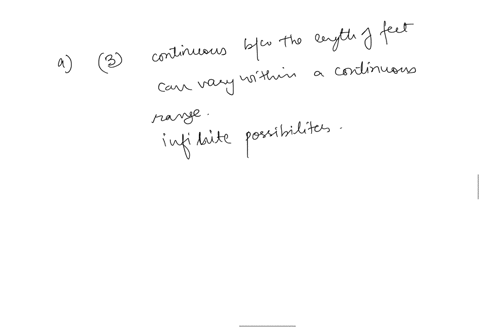 a) (3) continuous b/co the length of feet
can vary within a continuous
range.
infinite possibilites.